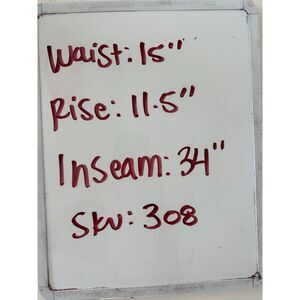 Waist: 15"
Rise: 11.5"
Inseam: 34"
Sku: 308